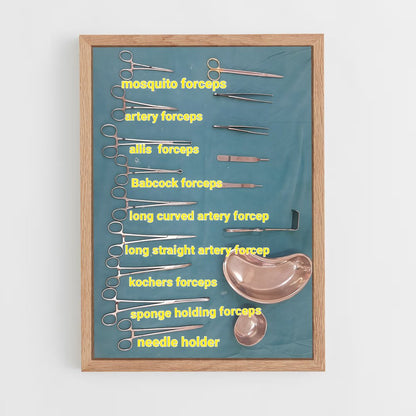 mosquito forceps
artery forceps
allis forceps
Babcock forceps
long curved artery forcep
long straight artery forcep
kochers forceps
sponge holding forceps
needle holder